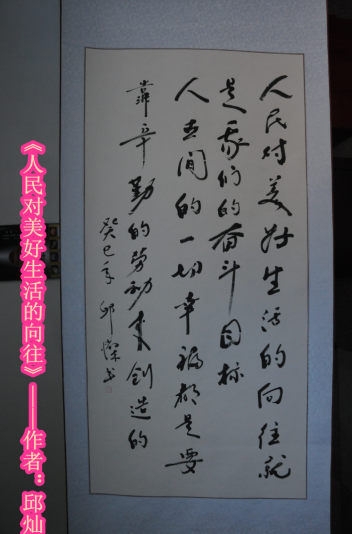 人民对美好生活的向往就
是我们的奋斗目标
人世间的一切幸福都是要
靠辛勤的劳动来创造的
癸巳年 邱燦书
《人民对美好生活的向往》——作者：邱灿